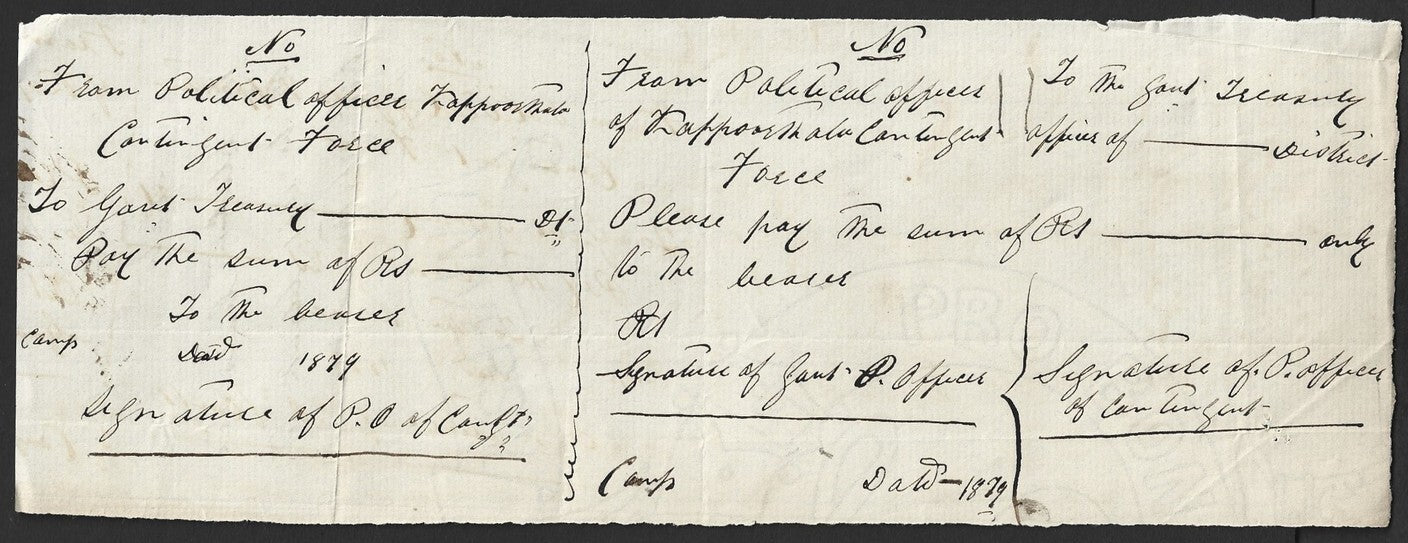 No
From Political officer Kappoorthala
Contingent Force
To Govt Treasury ———— Dt
Pay the sum of Rs ————
To the bearer
Camp
Datd 1879
Signature of P.O of Contgt
No
From Political officer
of Kappoorthala Contingent
Force
To the Govt Treasury
officer of ———— District
Please pay the sum of Rs ———— only
to the bearer
Rs
Signature of Govt P. Officer
Signature of P. officer
of Contingent
Camp Datd — 1879